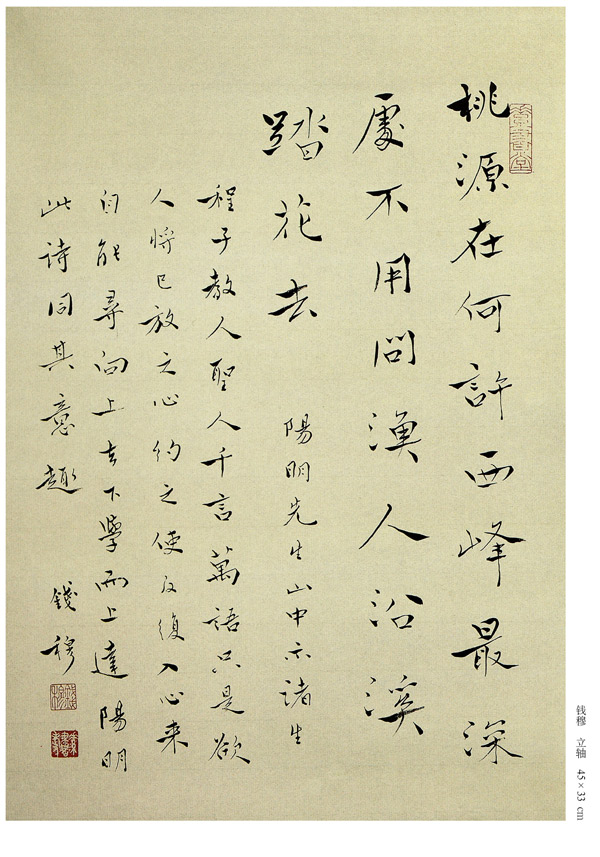 桃源在何許西峰最深
處不用問漁人沿溪
踏花去
陽明先生山中示諸生
程子教人聖人千言萬語只是欲
人將已放之心約之使反復入心来
自能尋向上去下學而上達陽明
此詩同其意趣
錢穆
钱穆 立轴 45×33 cm